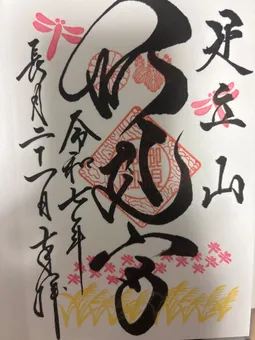 足立山
妙見宮
令和七年
長月二十一日 奉拝